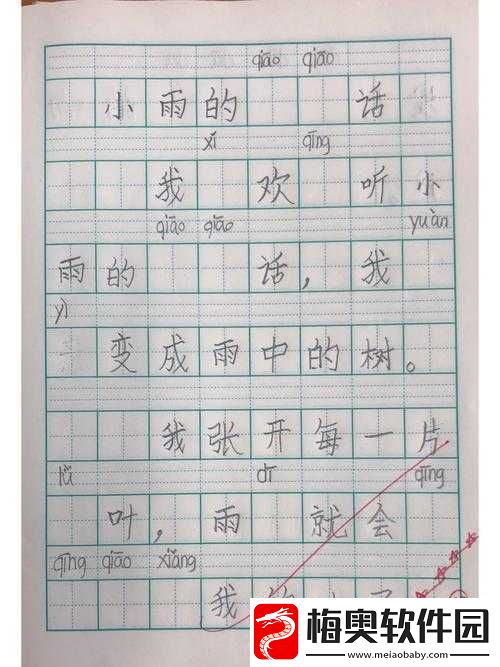 qiāo qiāo
小雨的 话
xǐ qīng
我 欢 听小
qiāo qiāo yuàn
雨的 话，我
yì
变成雨中的树。
我张开每一片
lǜ dī qīng
叶，雨 就会
qīng qiāo xiǎng
我的
梅奥软件园
www.meiaobaby.com